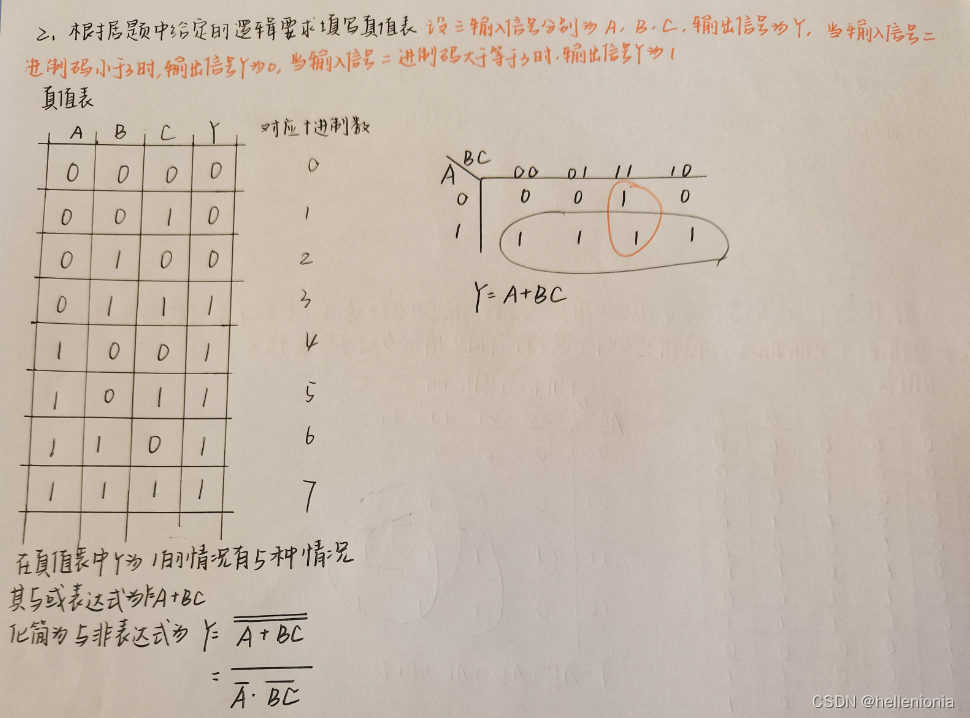 2、根据题中给定的逻辑要求填写真值表 设三输入信号分别为A、B、C,输出信号为Y,当输入信号二
进制码小于3时,输出信号Y为0,当输入信号二进制码大于等于3时,输出信号Y为1
真值表
A B C Y 对应十进制数
0 0 0 0 0
0 0 1 0 1
0 1 0 0 2
0 1 1 1 3
1 0 0 1 4
1 0 1 1 5
1 1 0 1 6
1 1 1 1 7
A\BC 00 01 11 10
0 0 0 1 0
1 1 1 1 1
Y=A+BC
在真值表中Y为1的情况有5种情况
其与或表达式为Y=A+BC
化简为与非表达式为 Y= $\overline{\overline{A+BC}}$
= $\overline{\overline{A}\cdot\overline{BC}}$
CSDN @hellenionia